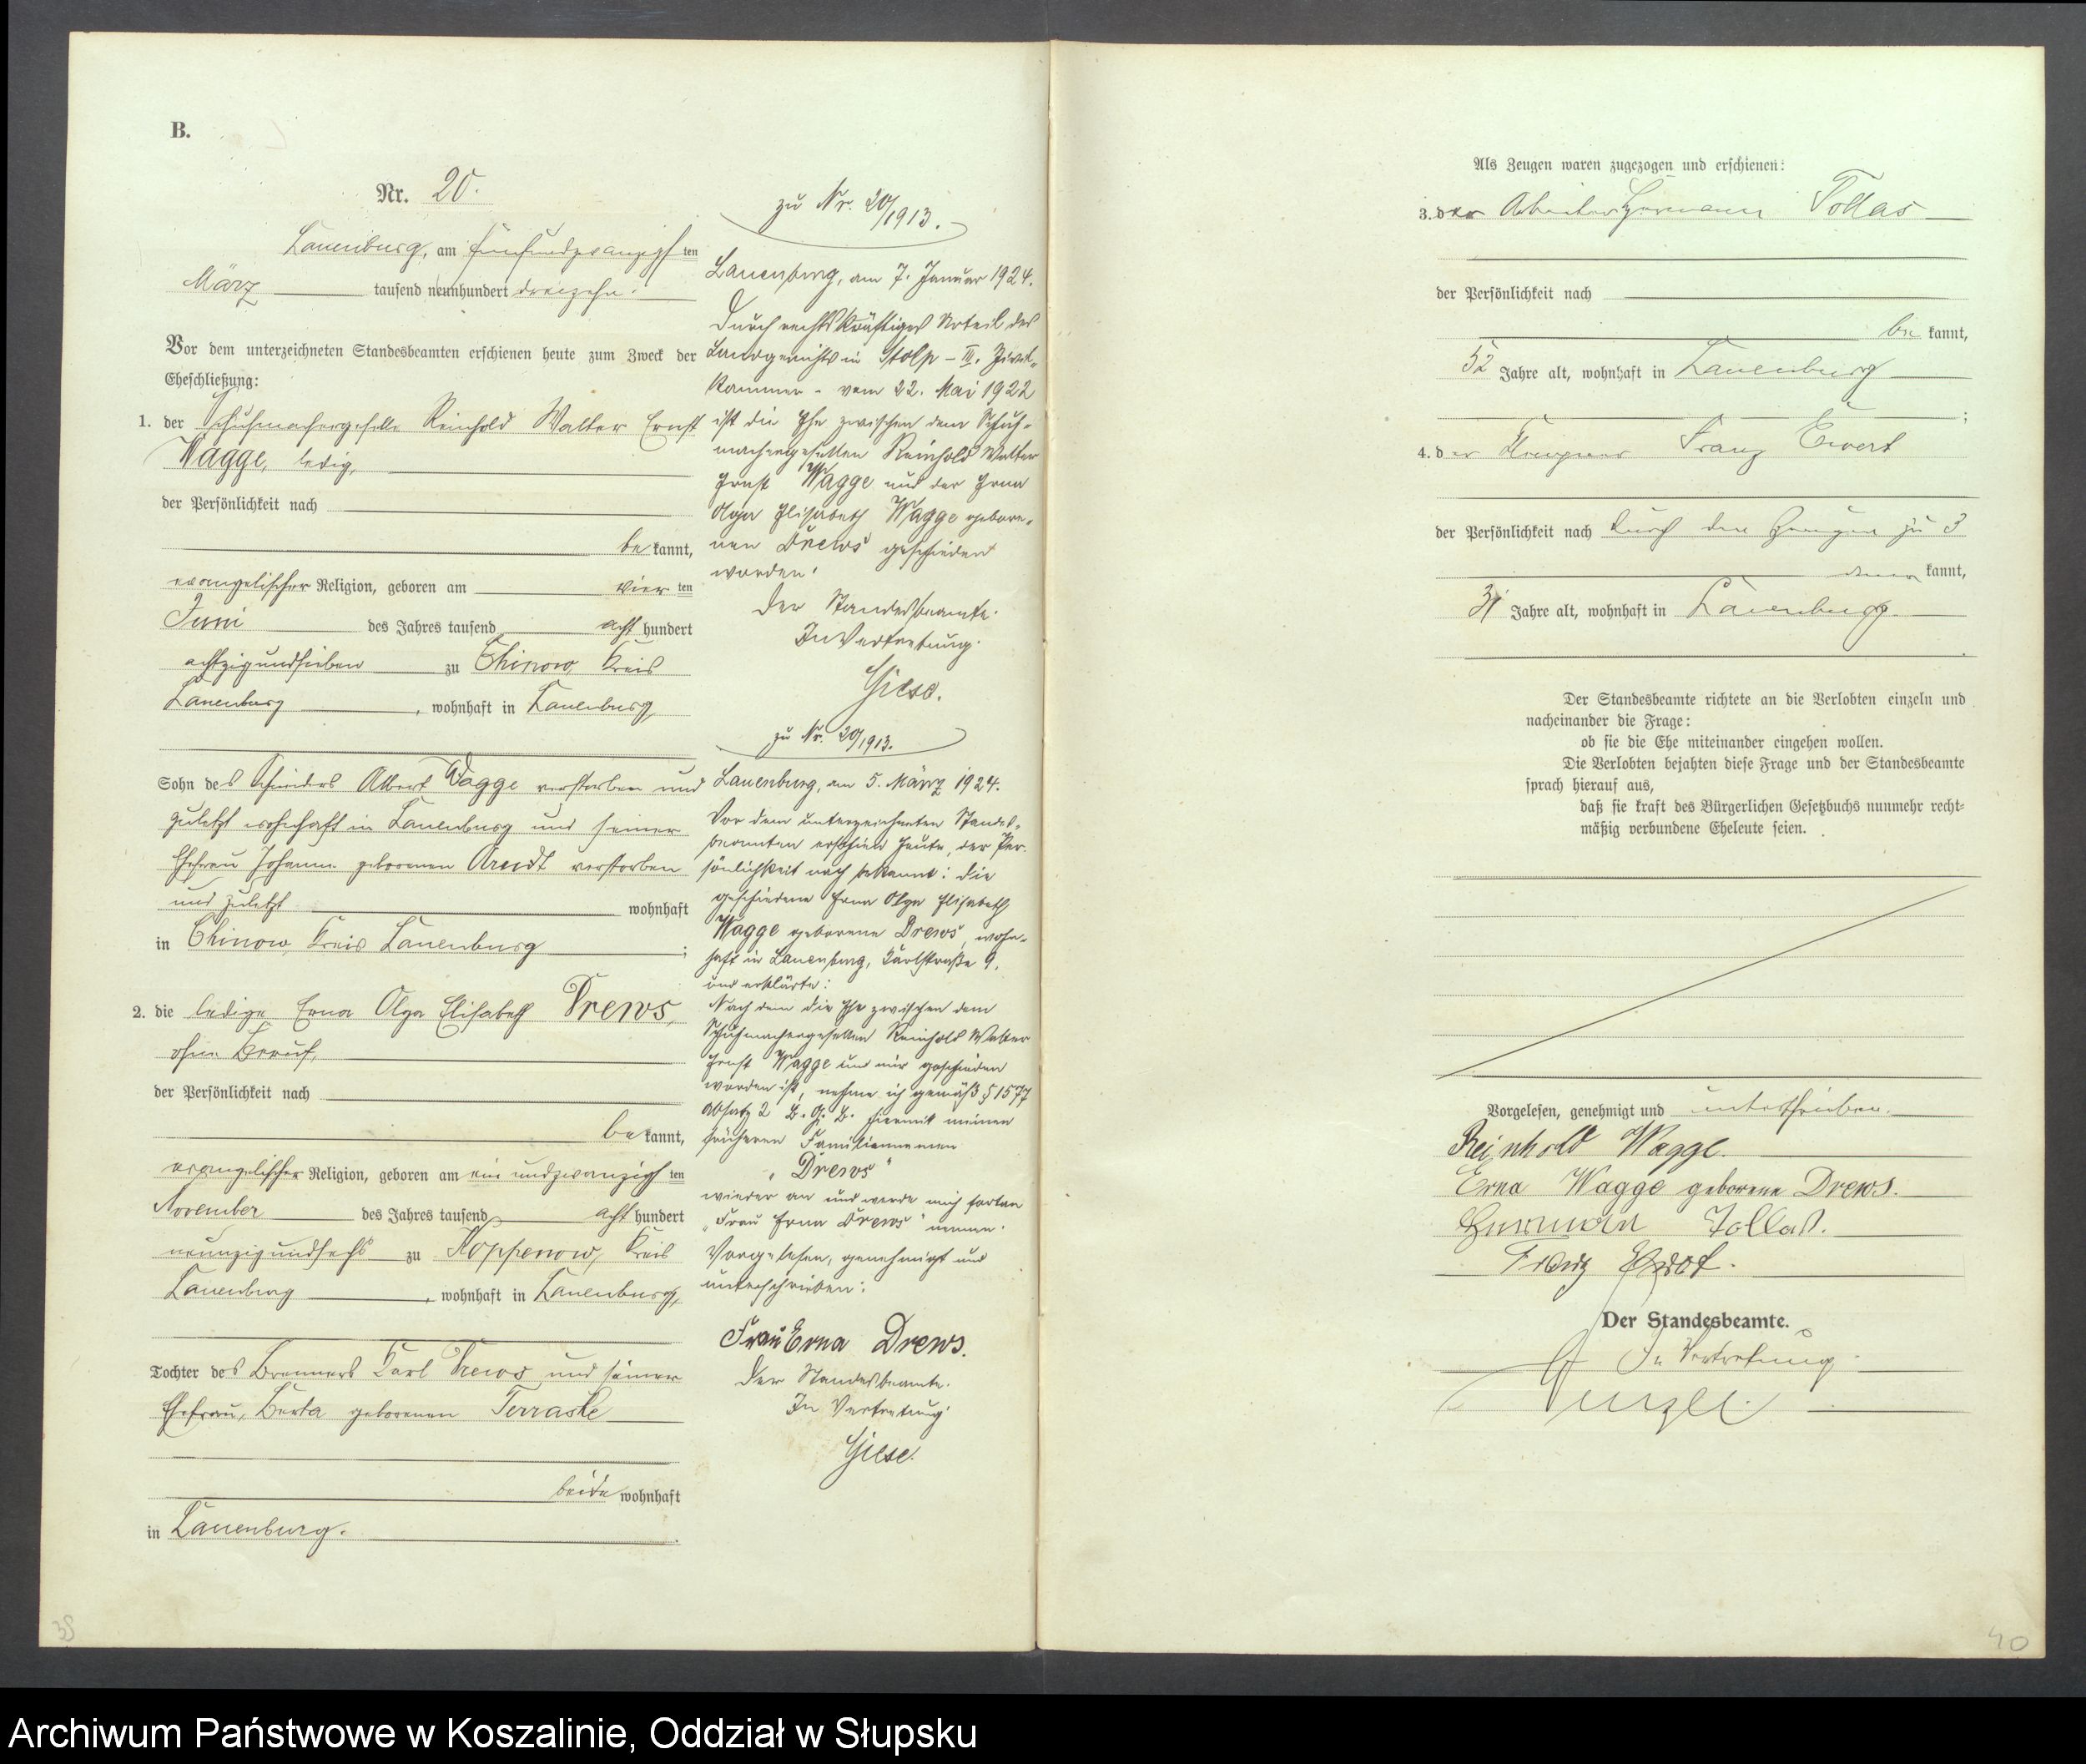 B.
Nr. 20.
Lauenburg, am fünfundzwanzigsten
März tausend neunhundert dreizehn.
Vor dem unterzeichneten Standesbeamten erschienen heute zum Zweck der
Eheschließung:
1. der Schuhmachergeselle Reinhold Walter Ernst
Wagge, ledig,
der Persönlichkeit nach
bekannt,
evangelischer Religion, geboren am vierten
Juni des Jahres tausend achthundert
achtzigundsieben zu Chinow, Kreis
Lauenburg, wohnhaft in Lauenburg
Sohn des Albert Wagge verstorben und
zuletzt wohnhaft in Lauenburg und seiner
Ehefrau Johanne geborenen Arndt verstorben
und zuletzt wohnhaft
in Chinow, Kreis Lauenburg;
2. die ledige Erna Olga Elisabeth Drews,
ohne Beruf,
der Persönlichkeit nach
bekannt,
evangelischer Religion, geboren am einundzwanzigsten
November des Jahres tausend achthundert
neunzigundsechs zu Koppenow, Kreis
Lauenburg, wohnhaft in Lauenburg,
Tochter des Brenners Karl Drews und seiner
Ehefrau, Berta geborenen Terraske
beide wohnhaft
in Lauenburg.
zu Nr. 20/1913.
Lauenburg, am 7. Januar 1924.
Durch rechtskräftiges Urteil des
Landgerichts in Stolp - III. Zivil-
kammer - vom 22. Mai 1922
ist die Ehe zwischen dem Schuh-
machergesellen Reinhold Walter
Ernst Wagge und der Erna
Olga Elisabeth Wagge gebore-
nen Drews geschieden
worden.
Der Standesbeamte.
In Vertretung.
Giese.
zu Nr. 20/1913.
Lauenburg, am 5. März 1924.
Vor dem unterzeichneten Standes-
beamten erschien heute, der Per-
sönlichkeit nach bekannt: die
geschiedene Erna Olga Elisabeth
Wagge geborene Drews, wohn-
haft in Lauenburg, Karlstraße 9,
und erklärte:
Nach dem die Ehe zwischen dem
Schuhmachergesellen Reinhold Walter
Ernst Wagge und mir geschieden
worden ist, nehme ich gemäß § 1577
Absatz 2 B. G. B. hiermit meinen
früheren Familiennamen
"Drews"
wieder an und werde mich fortan
"Frau Erna Drews" nennen.
Vorgelesen, genehmigt und
unterschrieben:
Frau Erna Drews.
Der Standesbeamte.
In Vertretung
Giese.
38
Als Zeugen waren zugezogen und erschienen:
3. der Arbeiter Hermann Tollas
der Persönlichkeit nach
bekannt,
52 Jahre alt, wohnhaft in Lauenburg
;
4. der Franz Ewert
der Persönlichkeit nach durch den Zeugen zu 3
kannt,
31 Jahre alt, wohnhaft in Lauenburg.
Der Standesbeamte richtete an die Verlobten einzeln und
nacheinander die Frage:
ob sie die Ehe miteinander eingehen wollen.
Die Verlobten bejahten diese Frage und der Standesbeamte
sprach hierauf aus,
daß sie kraft des Bürgerlichen Gesetzbuchs nunmehr recht-
mäßig verbundene Eheleute seien.
Vorgelesen, genehmigt und unterschrieben.
Reinhold Wagge.
Erna Wagge geborene Drews.
Hermann Tollas.
Franz Ewert.
Der Standesbeamte.
In Vertretung.
40
Archiwum Państwowe w Koszalinie, Oddział w Słupsku